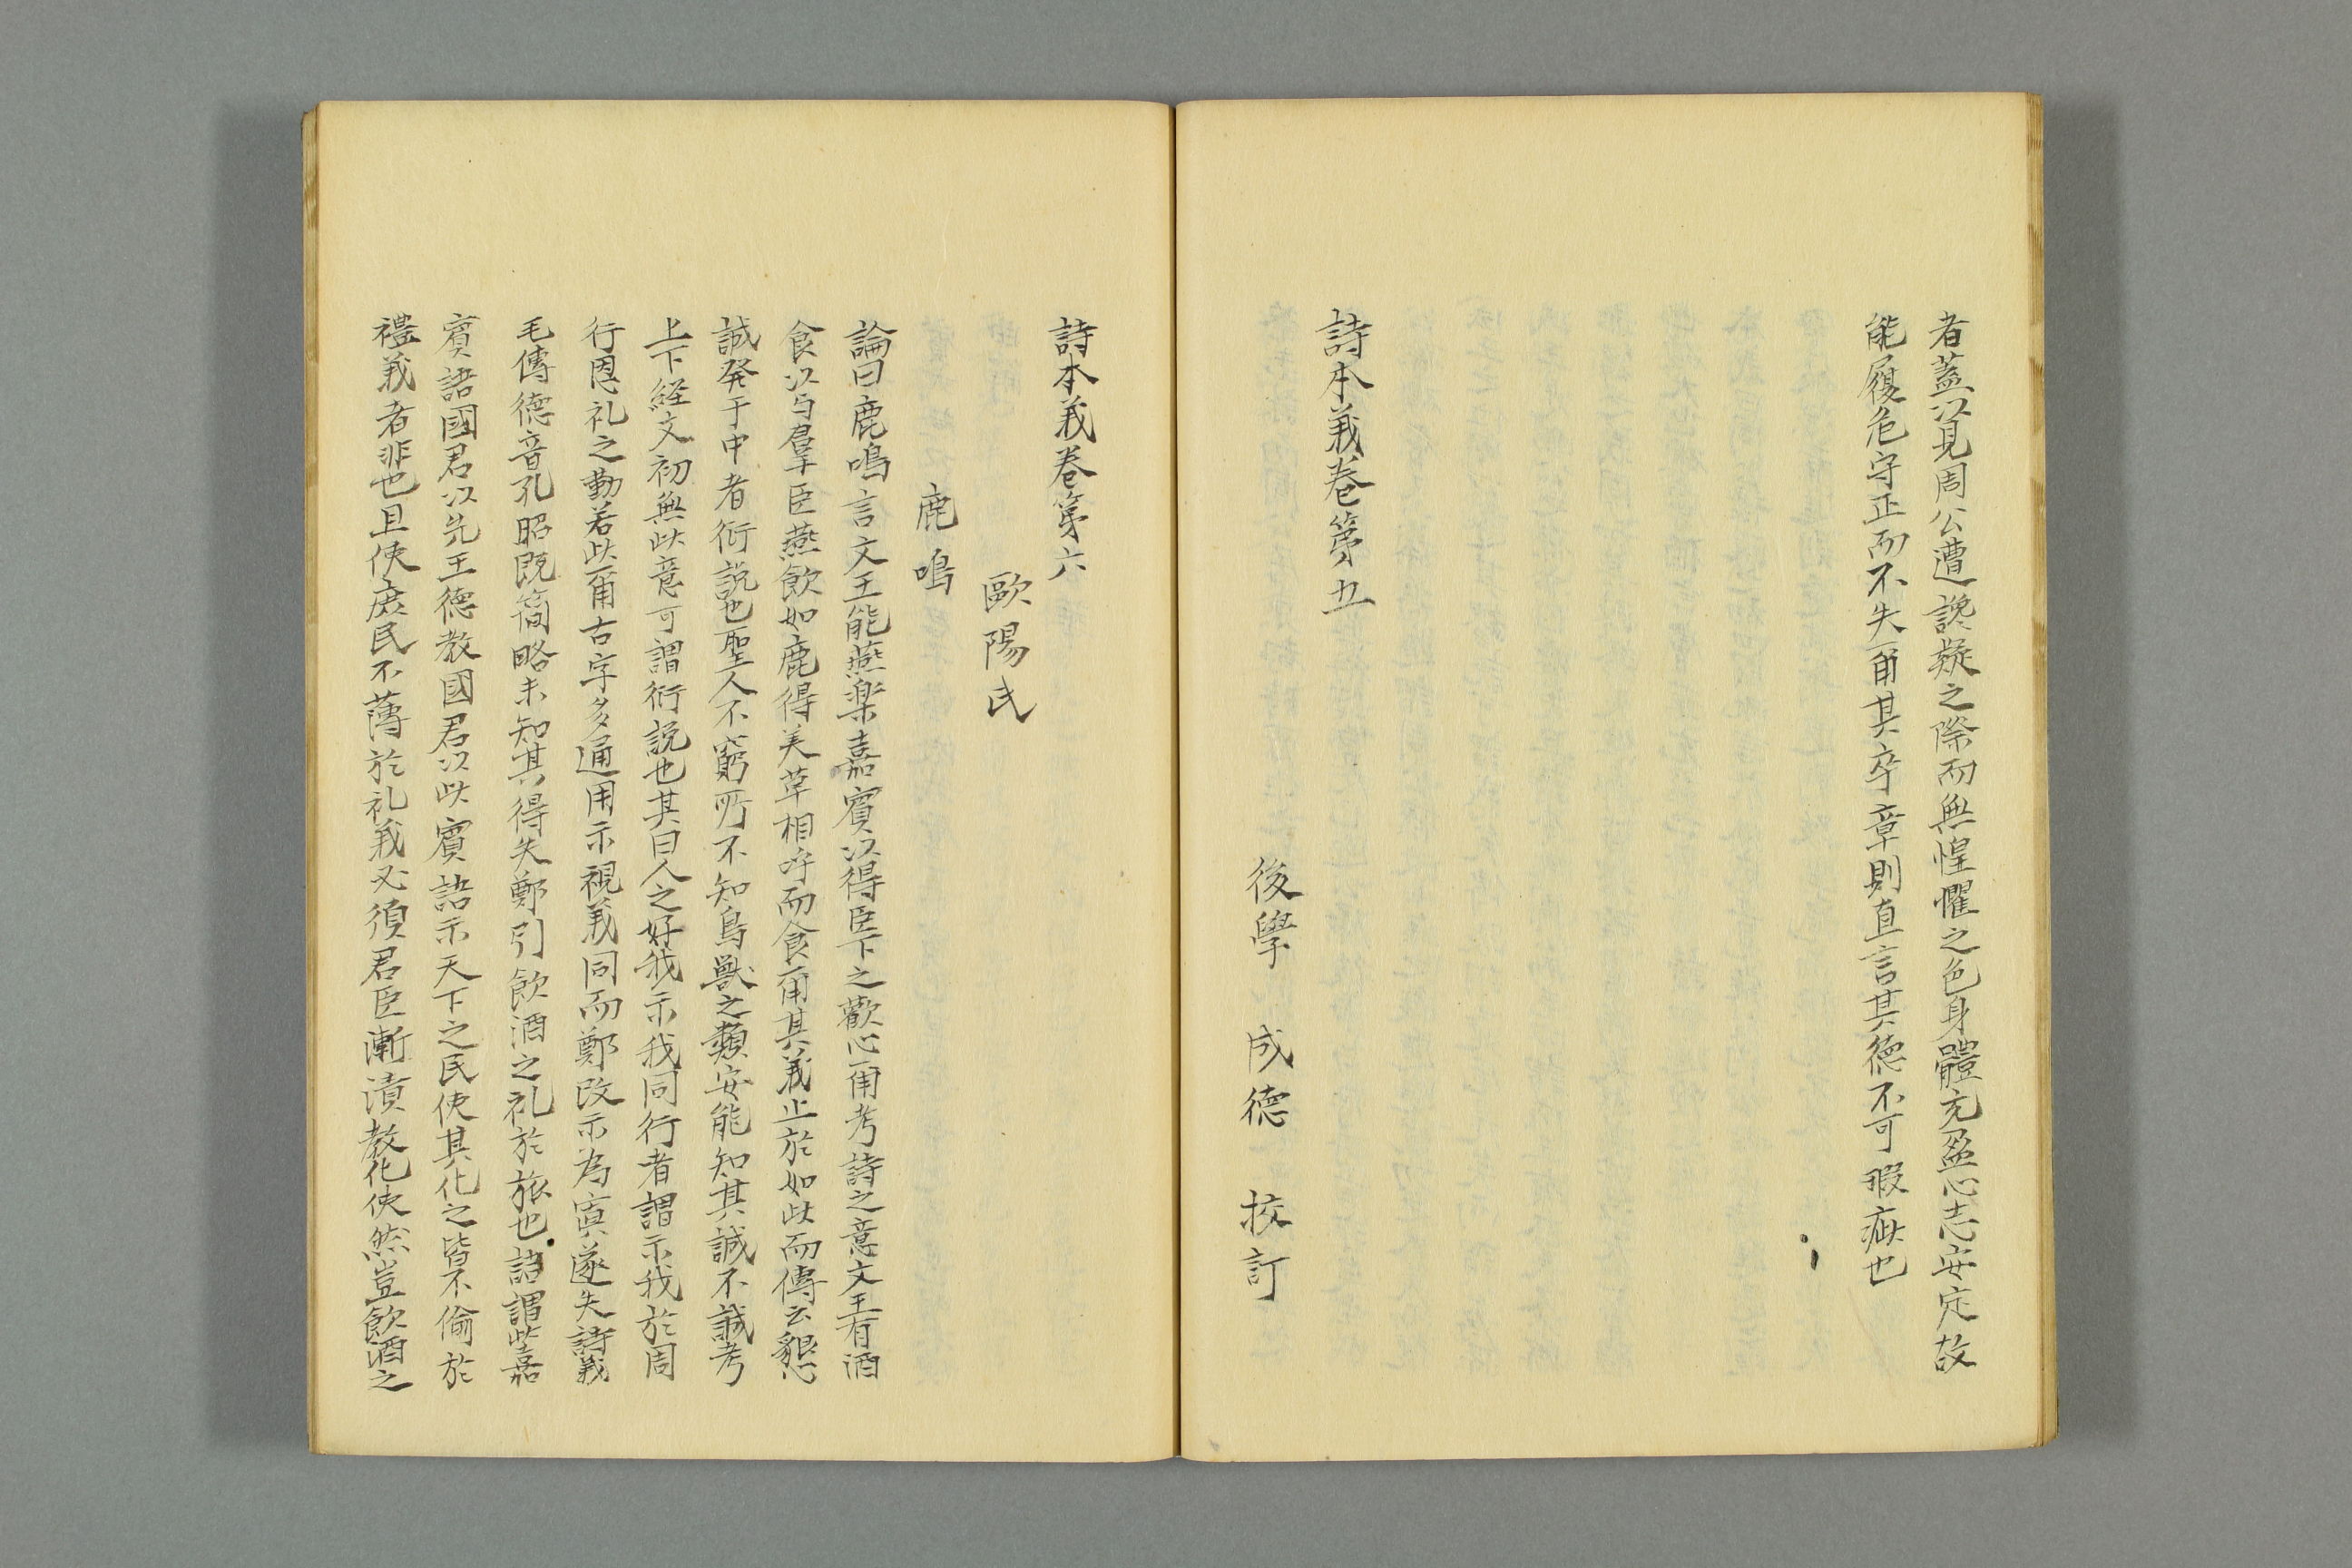 者蓋以見周公遭讒疑之際而無惶懼之色身體充盈心志安定故
能履危守正而不失爾其卒章則直言其德不可瑕疵也
詩本義卷第五
後學 成德 挍訂
詩本義卷第六
歐陽氏
鹿鳴
論曰鹿鳴言文王能燕楽嘉賓以得臣下之歡心爾考詩之意文王有酒
食以与羣臣燕飲如鹿得美草相呼而食爾其義止於如此而傳云懇
誠発于中者衍説也聖人不窮所不知鳥獣之類安能知其誠不誠考
上下経文初無此意可謂衍説也其曰人之好我示我同行者謂示我於周
行恩礼之勤若此爾古字多通用示視義同而鄭改示為寘遂失詩義
毛傳德音孔昭既簡略未知其得失鄭引飲酒之礼於旅也語謂此嘉
賓語國君以先王德教國君以此賓語示天下之民使其化之皆不偷於
禮義者非也且使庶民不薄於礼義必須君臣漸漬教化使然豈飲酒之